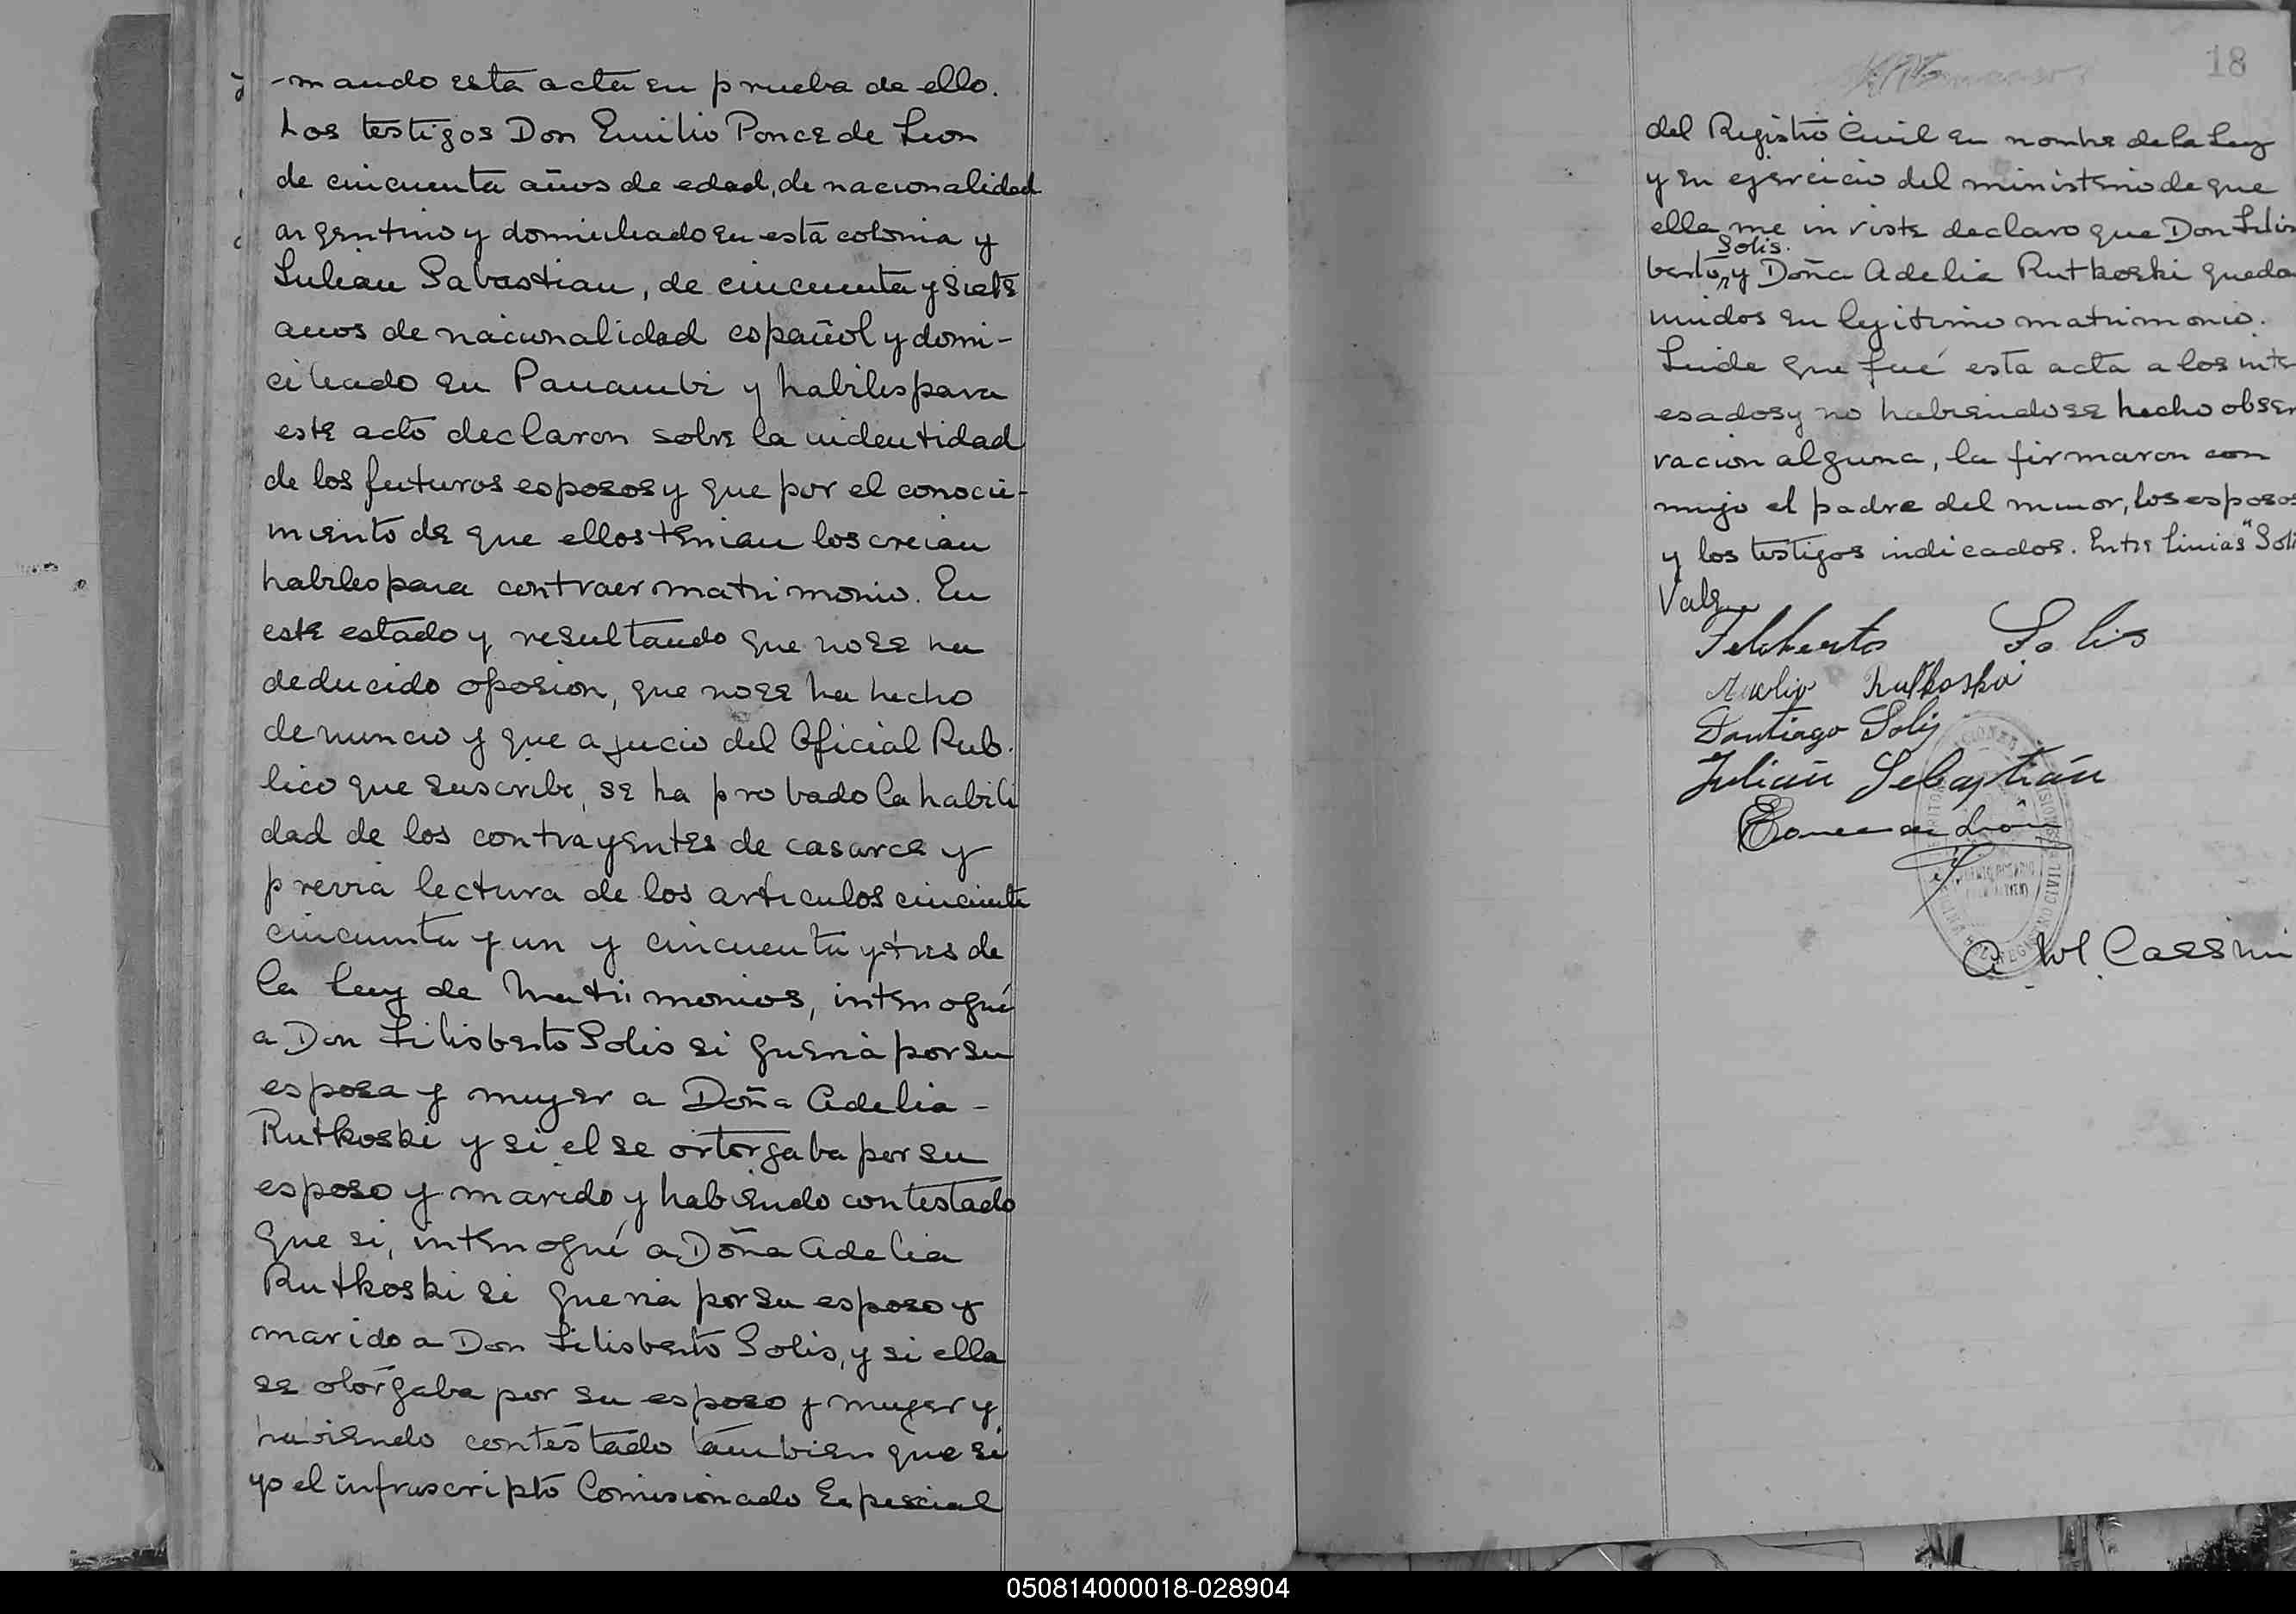 -mando esta acta en prueba de ello.
Los testigos Don Emilio Ponce de Leon
de cincuenta años de edad, de nacionalidad
argentino y domiciliado en esta colonia y
Julian Sabastian, de cincuenta y siete
anos de nacionalidad español y domi-
ciliado en Panambi y habiles para
este acto declaron sobre la indentidad
de los futuros esposos y que por el conoci-
miento de que ellos tenian los creian
habiles para contraer matrimonio. En
este estado y resultando que no se ha
deducido oposion, que no se ha hecho
denuncio y que a jucio del Oficial Pub-
lico que suscribe, se ha probado la habili
dad de los contrayentes de casarce y
previa lectura de los articulos cincuenta
cincuenta y un y cincuenta y tres de
la Ley de Matrimonios, interrogué
a Don Filisberto Solis si queria por su
esposa y mujer a Doña Adelia -
Rutkoski y si el se ortorgaba por su
esposo y marido y habiendo contestado
que si, interrogué a Doña Adelia
Rutkoski si queria por su esposo y
marido a Don Filisberto Solis, y si ella
se otorgaba por su esposo y mujer y
habiendo contestado tambien que si
yo el infrascripto Comisionado Especial
18
del Registro Civil en nombre de la Ley
y en ejercicio del ministerio de que
ella me inviste declaro que Don Filis
Solis.
berto, y Doña Adelia Rutkoski queda
unidos en legitimo matrimonio.
Leida que fué esta acta a los inter
esados y no habiendose hecho obser
vacion alguna, la firmaron con
migo el padre del menor, los esposos
y los testigos indicados. Entre linias "Soli
Vale
Feliberto Solis
Rutkoski
Santiago Solis
Julián Sebastián
Ponce de León
REGISTRO CIVIL
A M Cassini
050814000018-028904